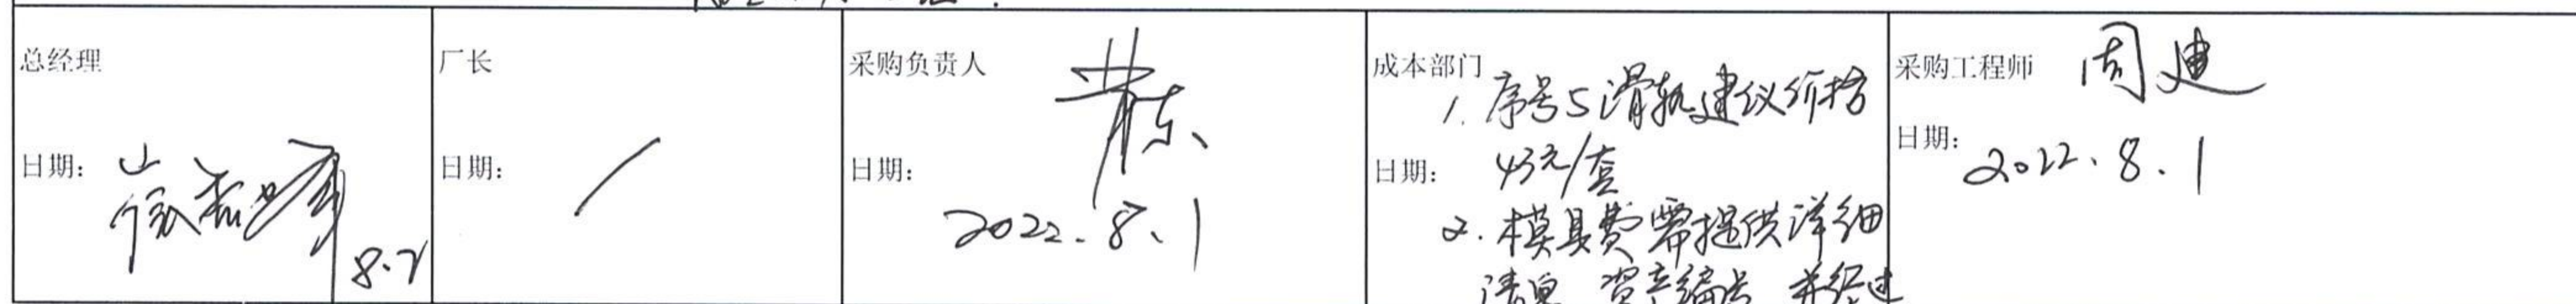 总经理
日期：
8.2
厂长
日期：
/
采购负责人
日期：
2022.8.1
成本部门
1. 序号5滑轨建议价格
日期：
43元/套
2. 模具费需提供详细
清单 资产编号 并经过
采购工程师 周迪
日期：
2022.8.1